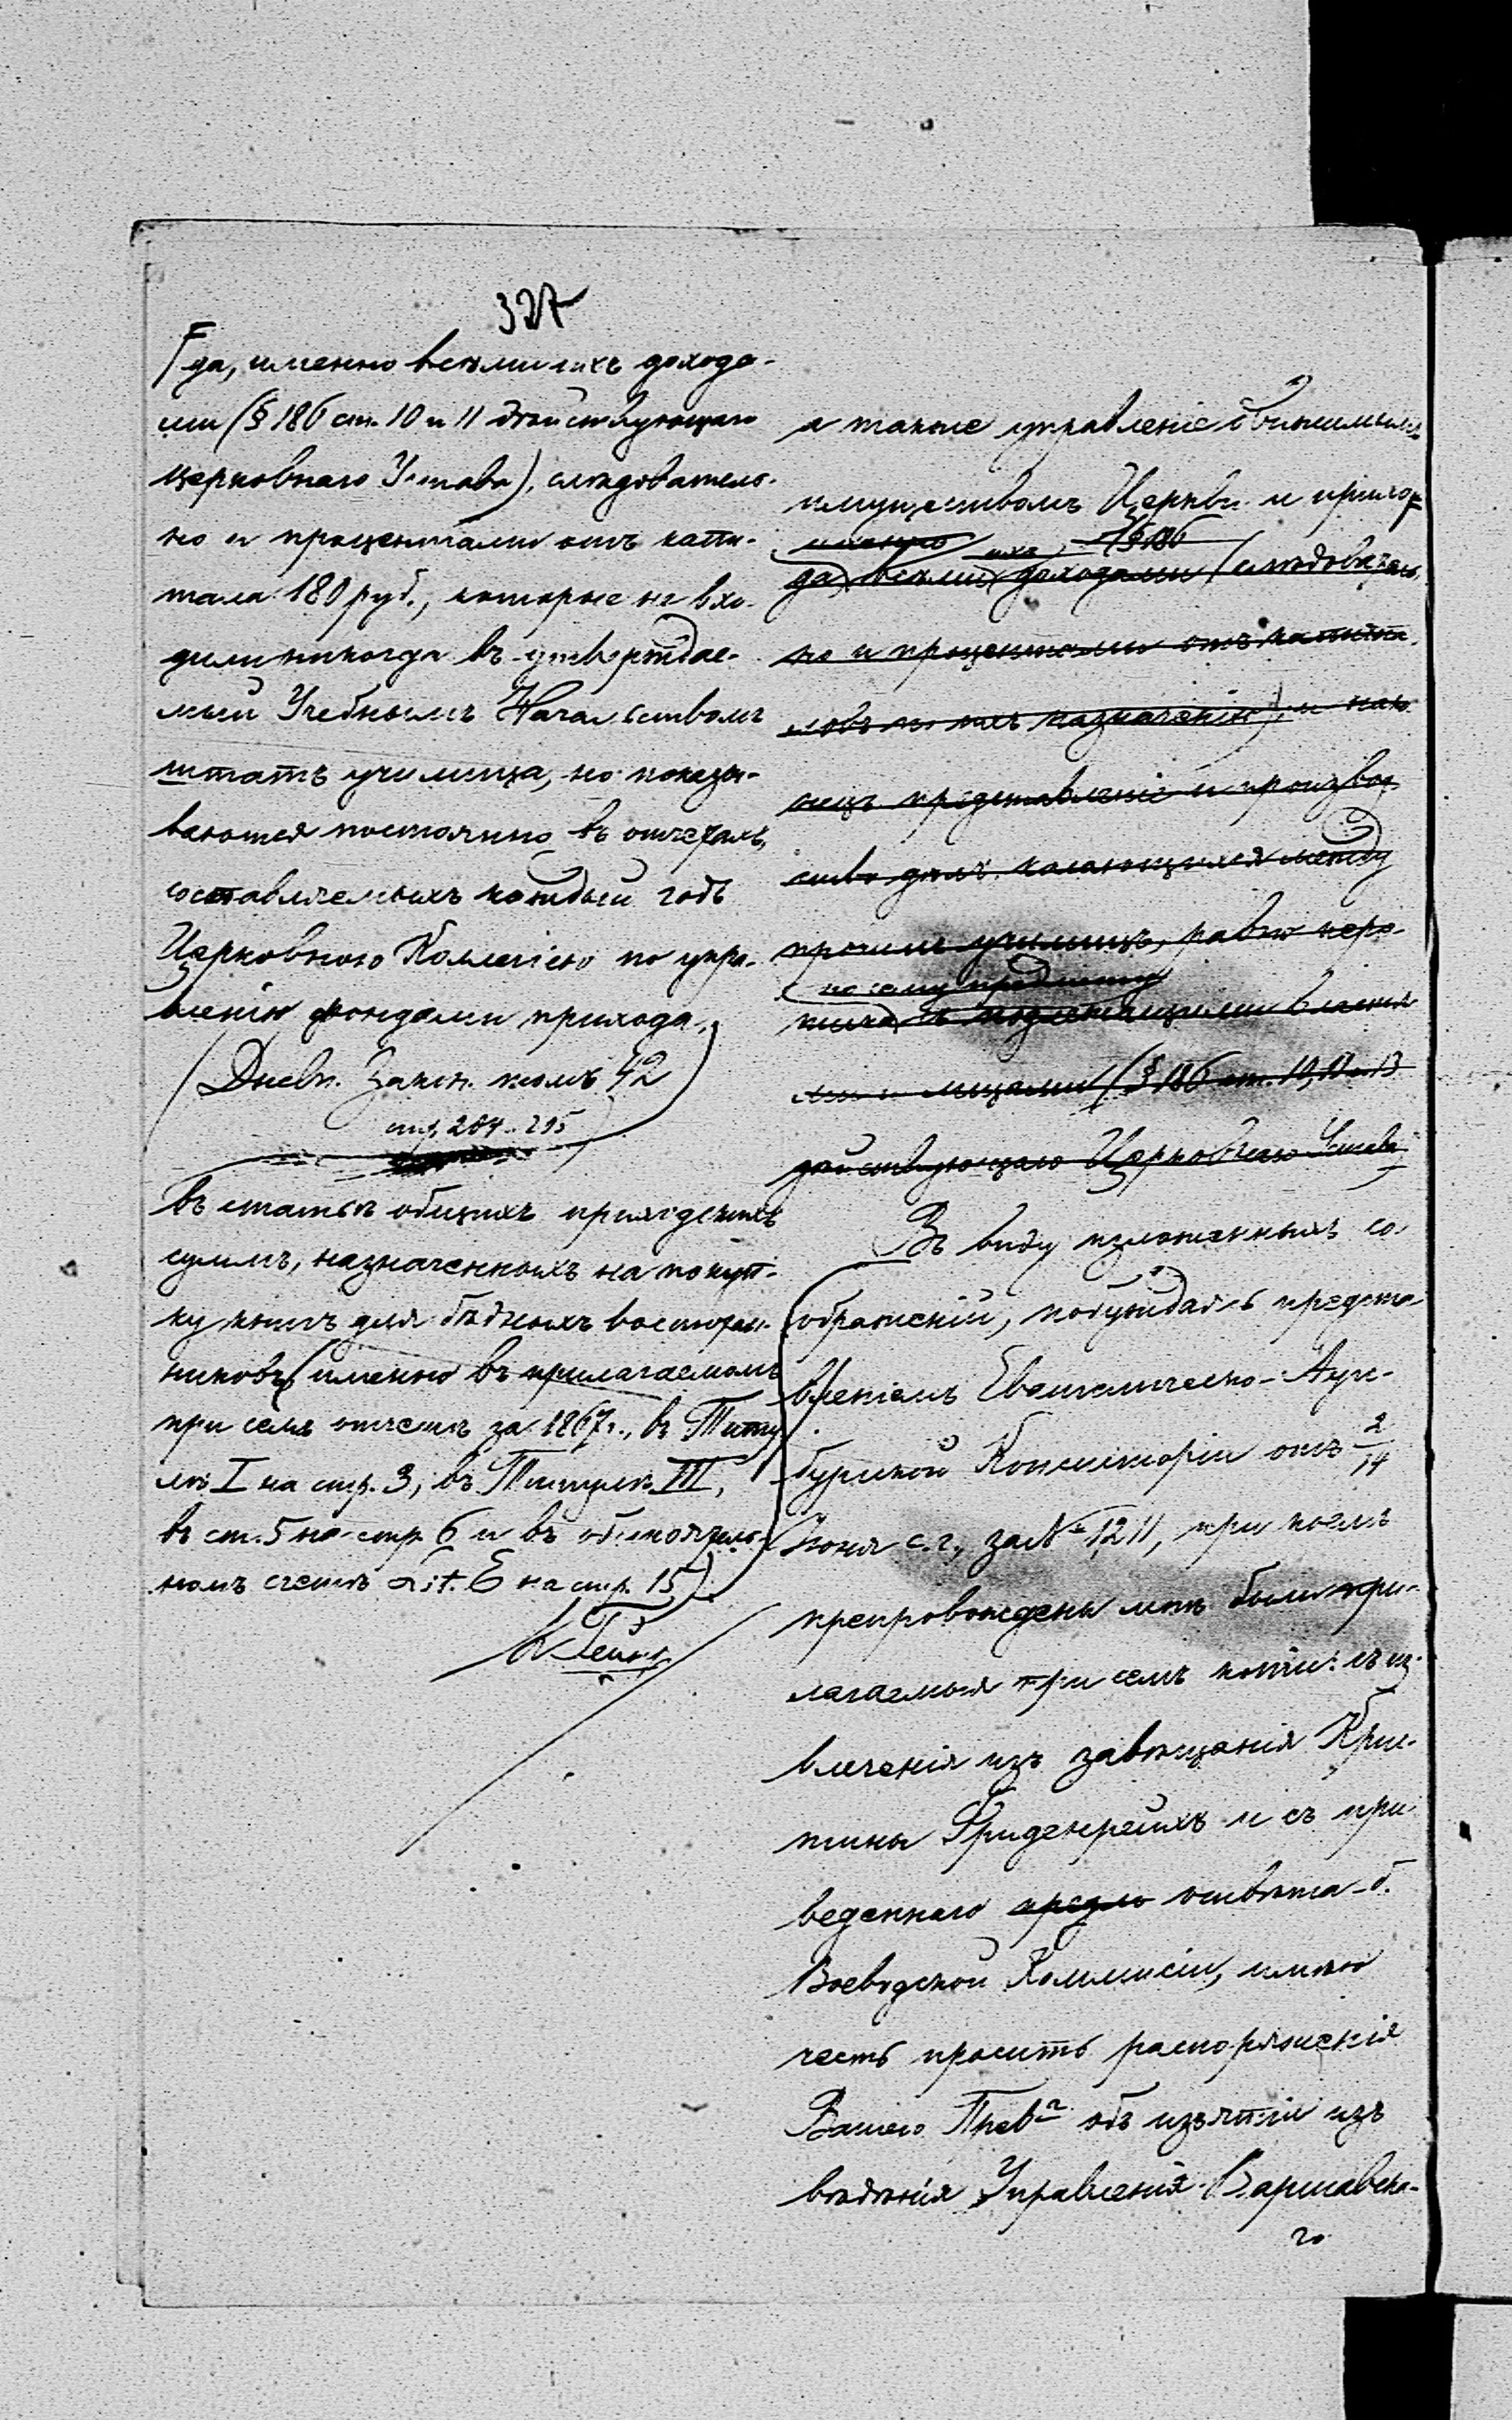 327
да, именно всѣми ихъ дохода-
ми (§ 186 ст. 10 и 11 дѣйствующаго
Церковнаго Устава), слѣдователь-
но и процентами отъ капи-
тала 180 руб., которые не вхо-
дили никогда въ утверждае-
мый Учебнымъ Начальствомъ
штатъ училища, но показы-
ваются постоянно въ отчетахъ,
составляемыхъ каждый годъ
Церковною Коллегіею по упра-
вленію фондами прихода.
(Дневн. Закон. томъ 42
стр. 204-295)
въ статьѣ общихъ
суммъ, назначенныхъ на покуп-
ку книгъ для бѣдныхъ воспитан-
никовъ (именно въ прилагаемомъ
при семъ отчетѣ за 1867 г., въ Титу-
лѣ I на стр. 3, въ Титулѣ III,
въ ст. 5 на стр. 6 и въ
номъ счетѣ Lit. E на стр. 15).
а также управленіе движимымъ
имуществомъ Церкви и прихо-
именно ихъ (§ 186
да, всѣми доходами (слѣдователь-
но и процентами отъ капита-
ловъ по ихъ назначенію), и нако-
нецъ представленіе и производ-
ство дѣлъ, касающихся между
прочимъ училищъ, равно пере-
по сему предмету
писка съ подлежащими властя-
ми и лицами (§ 186 ст. 10, 11 и 13
дѣйствующаго Церковнаго Устава)
Въ виду изложенныхъ со-
ображеній, побуждаясь предста-
вленіемъ Евангелическо-Аугс-
бургской Консисторіи отъ 2/14
Іюня с. г., за № 1211, при коемъ
препровождены мнѣ были при-
лагаемыя при семъ копіи: съ из-
влеченія изъ завѣщанія Крис-
тины Фриденрейхъ и съ при-
веденнаго предло отвѣта б.
Воеводской Коммисіи, имѣю
честь просить распоряженія
Вашего Прев-а объ изъятіи изъ
вѣдѣнія Управленія Варшавска-
го